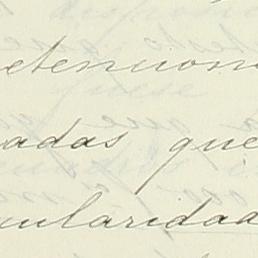 etencion
adas que
cularidad